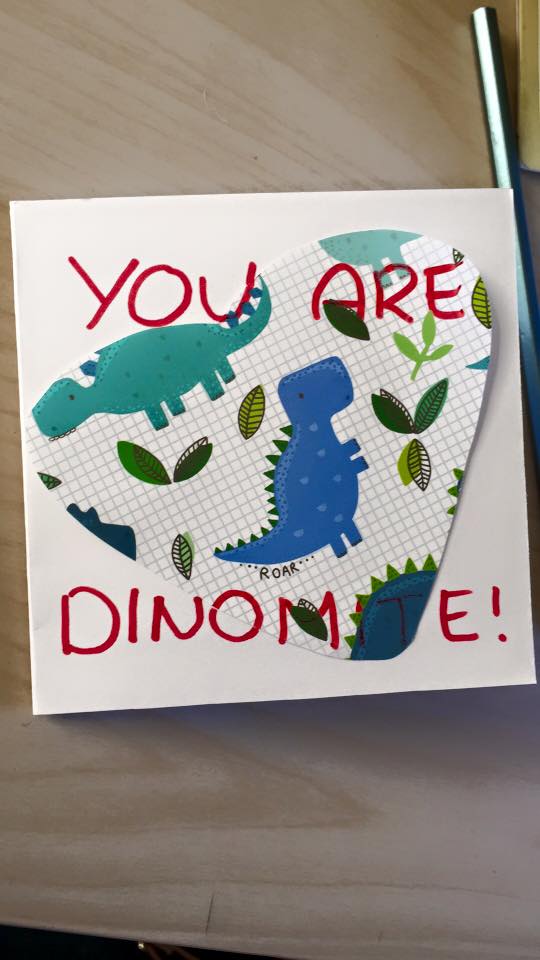 YOU ARE
ROAR
DINOMITE!